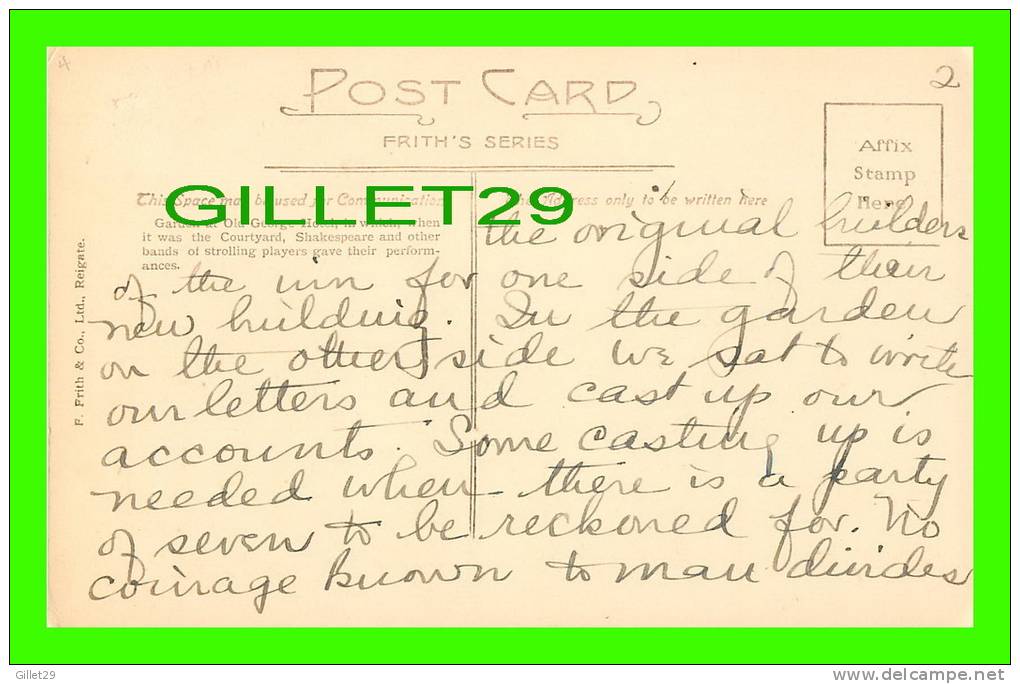 2
POST CARD
FRITH'S SERIES
Affix
Stamp
Here
This Space may be used for Communication
The Address only to be written here
GILLET29
Garden at Old George Hotel, in which, when
it was the Courtyard, Shakespeare and other
bands of strolling players gave their perform-
ances.
F. Frith & Co., Ltd., Reigate.
the original builders
of the inn for one side of their
new building. In the garden
on the other side we sat to write
our letters and cast up our
accounts. Some casting up is
needed when there is a party
of seven to be reckoned for. No
courage known to man divides
Gillet29
delcampe.net